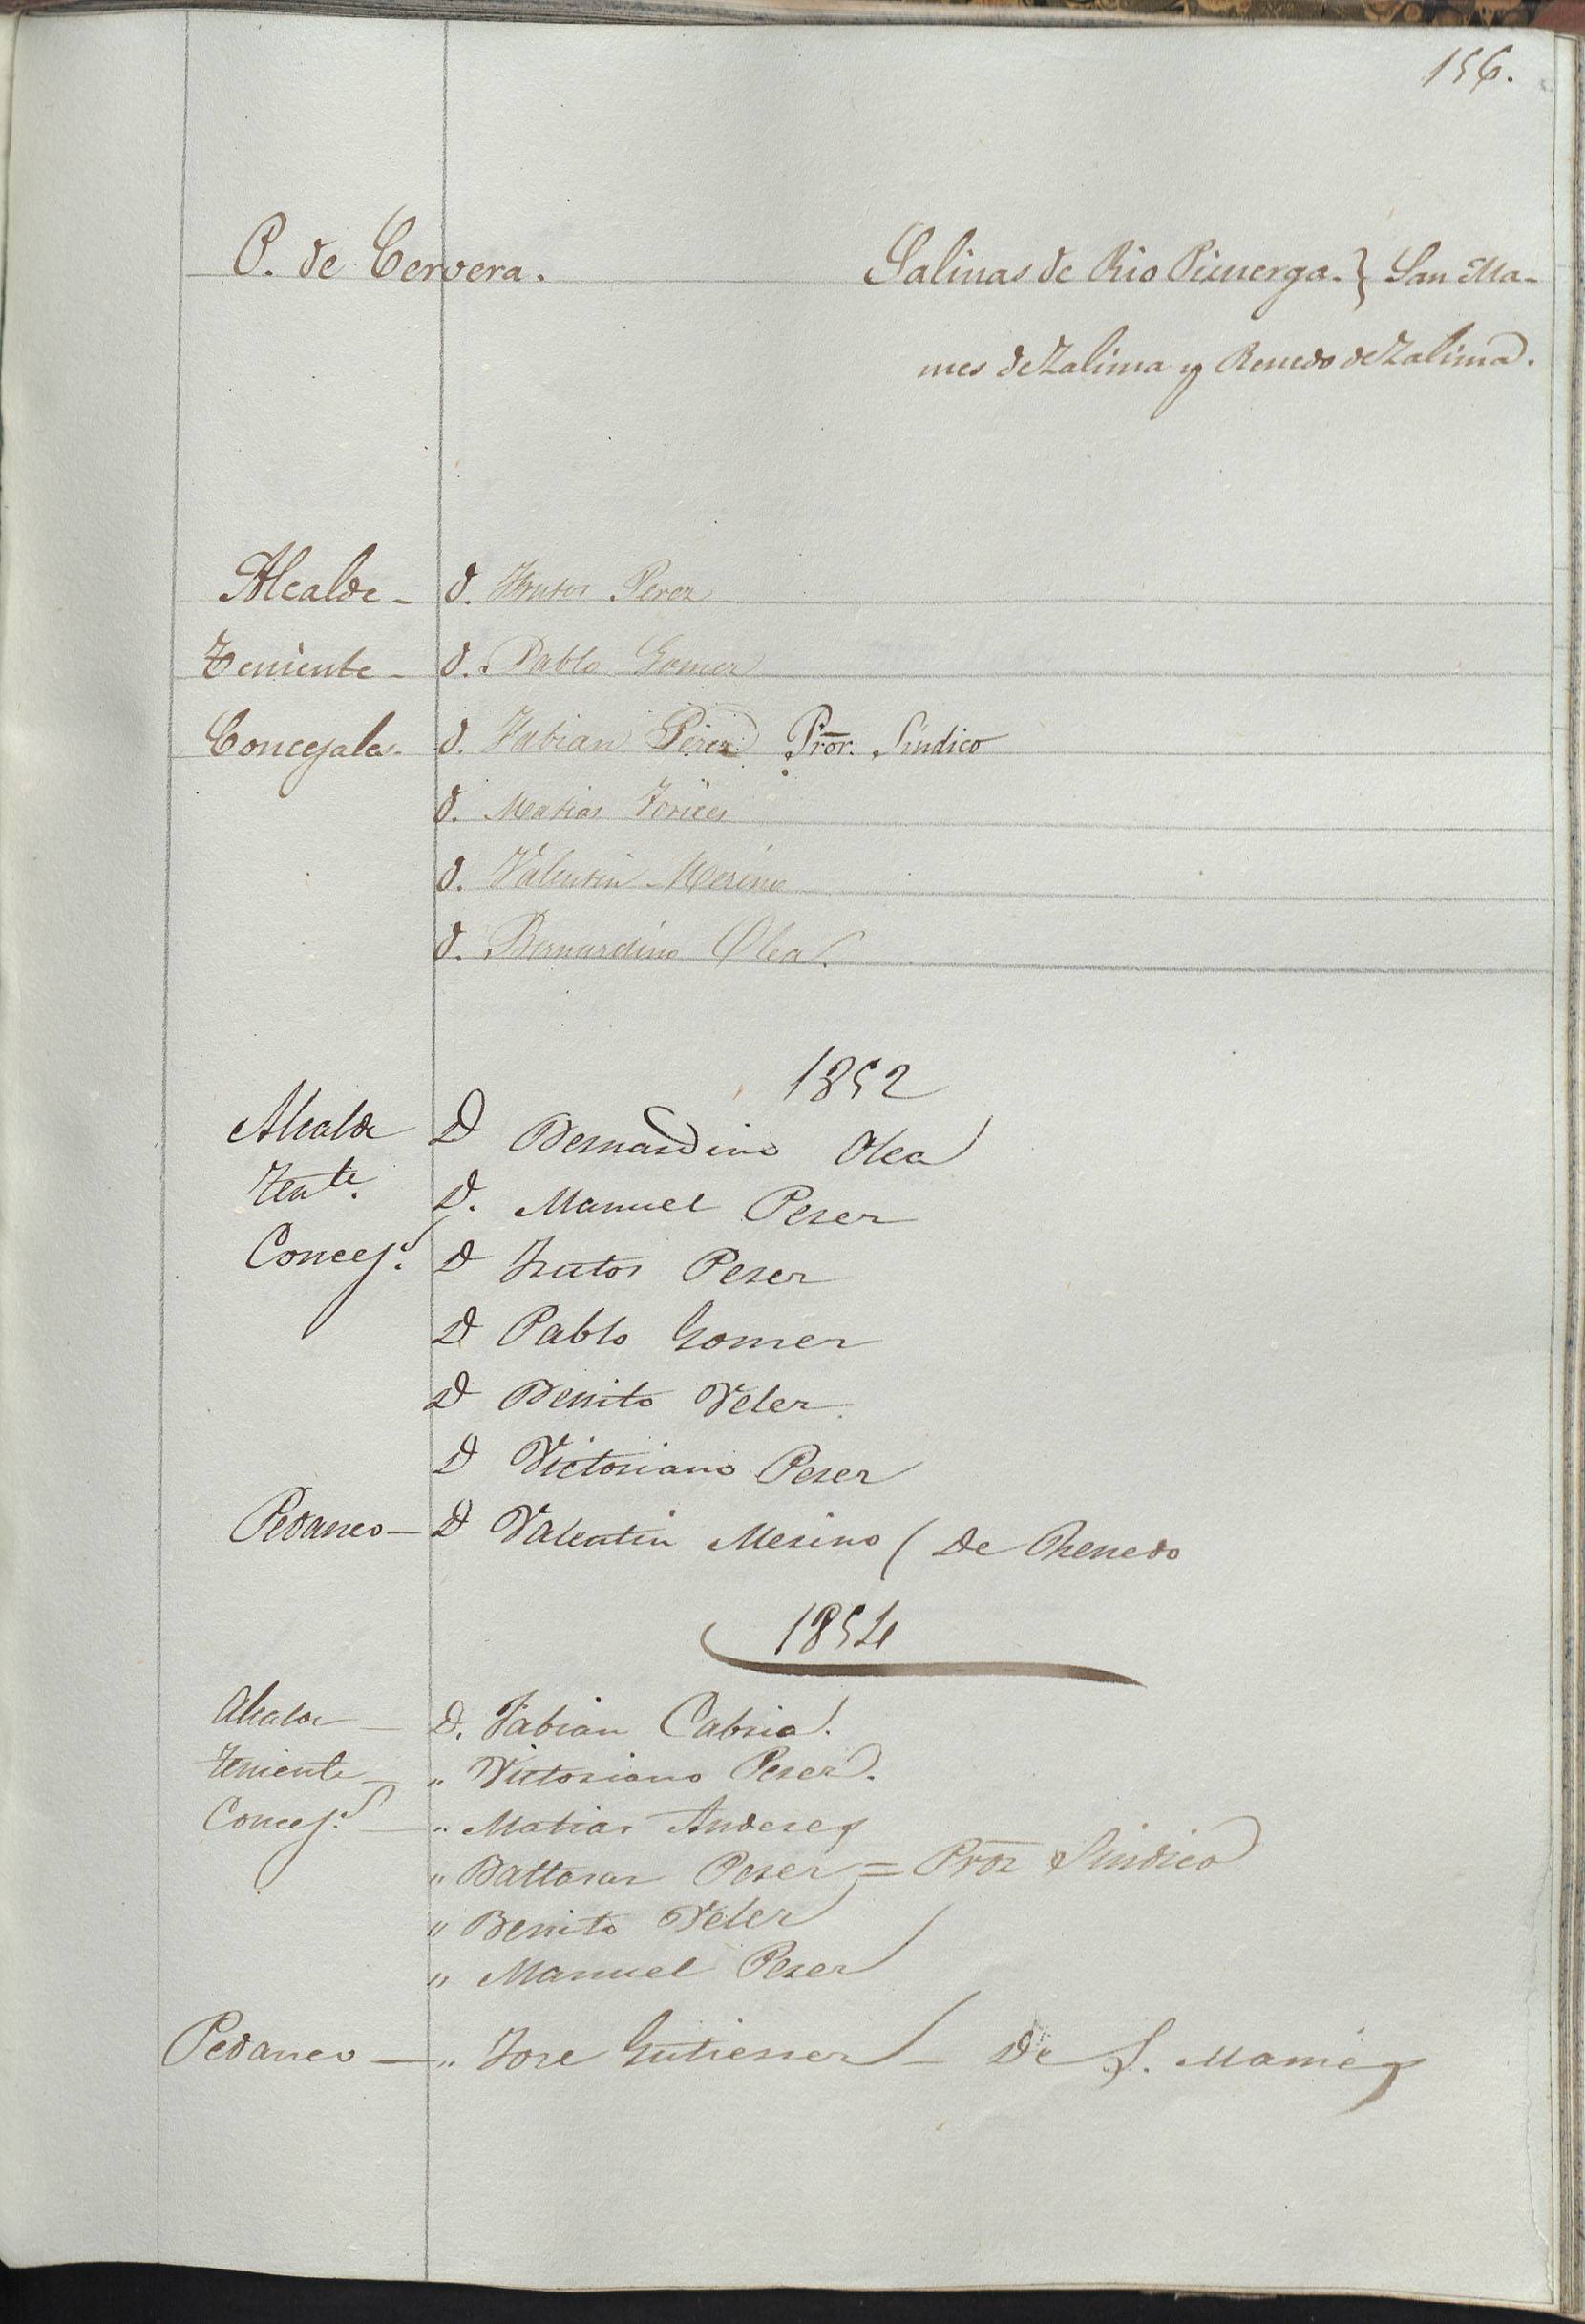 156.
P. de Cervera. Salinas de Rio Pisuerga. } San Ma-
mes de Zalima y Renedo de Zalima.
Alcalde - D. Frutos Perez
Teniente - D. Pablo Gomez
Concejales. D. Fabian Perez Pror. Síndico
D. Matias
D. Valentin Merino
D. Bernardino Olea.
1852
Alcalde D Bernardino Olea
Tente. D. Manuel Perez
Concejs. D Frutos Perez
D Pablo Gomez
D Benito Velez
D Victoriano Perez
Pedaneo - D Valentin Merino ( De Renedo
1854
Alcalde - D. Fabian Cabria.
Teniente - " Victoriano Perez.
Concejs. - " Matias Anderez
" Baltasar Perez = Pror Sindico
" Benito Velez
" Manuel Perez
Pedaneo - " Jose Gutierrez - De S. Mamés